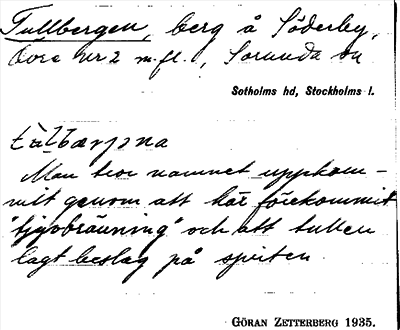 Tullbergen, berg å Söderby,
Ovra nr 2 m.fl., Sorunda sn
Sotholms hd, Stockholms l.
tu̇l̄bærjəna
Man tror namnet uppkom-
mit genom att här förekommit
"tjuvbränning" och att tullen
lagt beslag på spriten.
GÖRAN ZETTERBERG 1935.